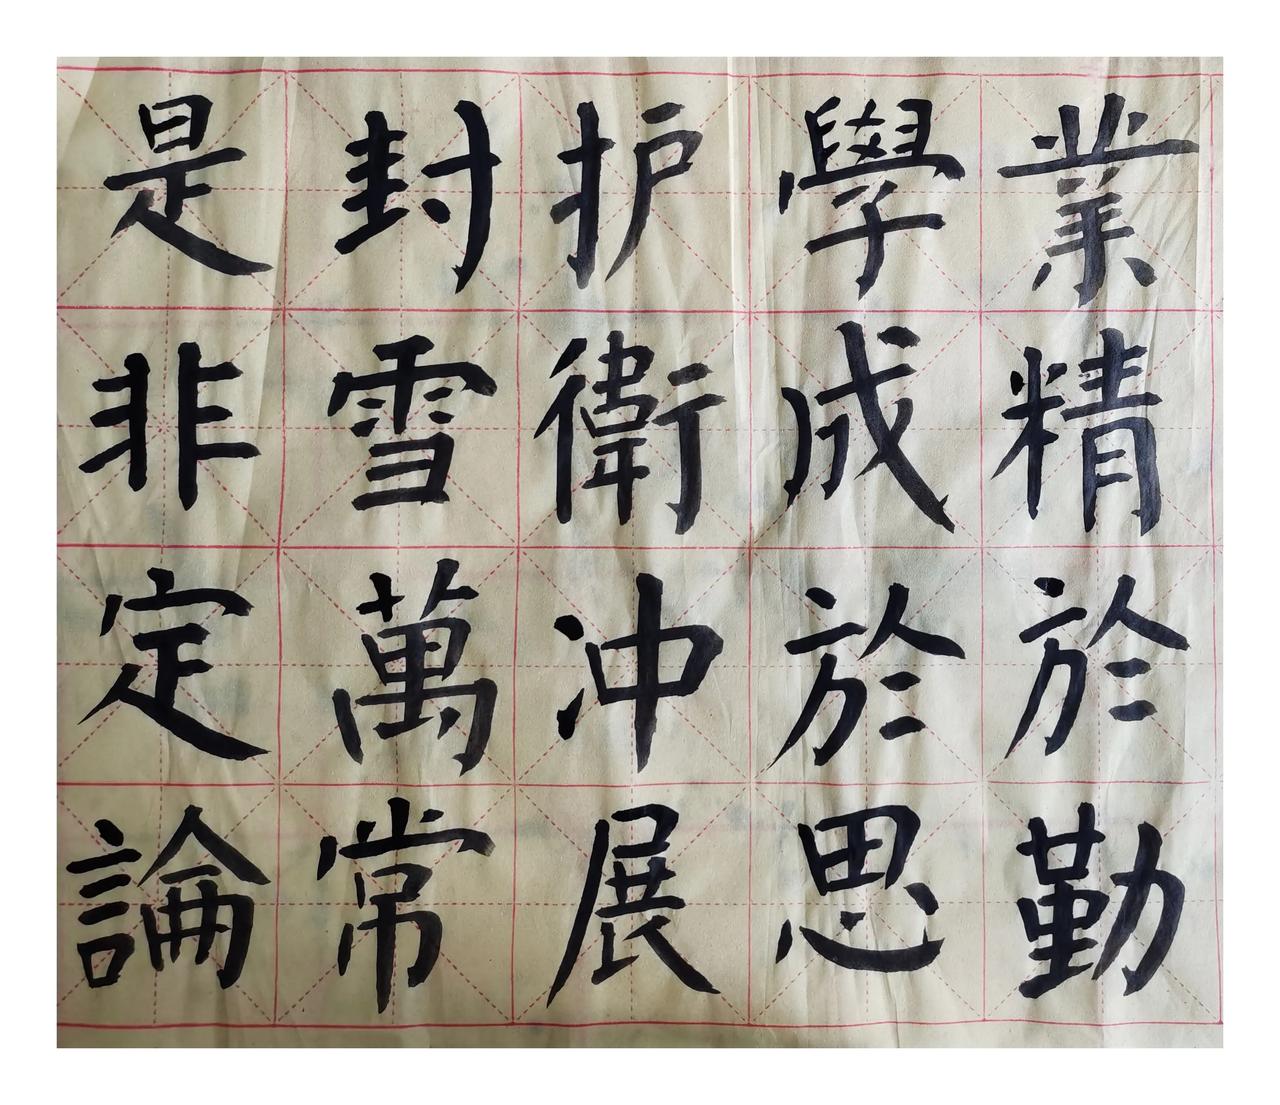 業精於勤
學成於思
护衛冲展
封雪萬常
是非定論